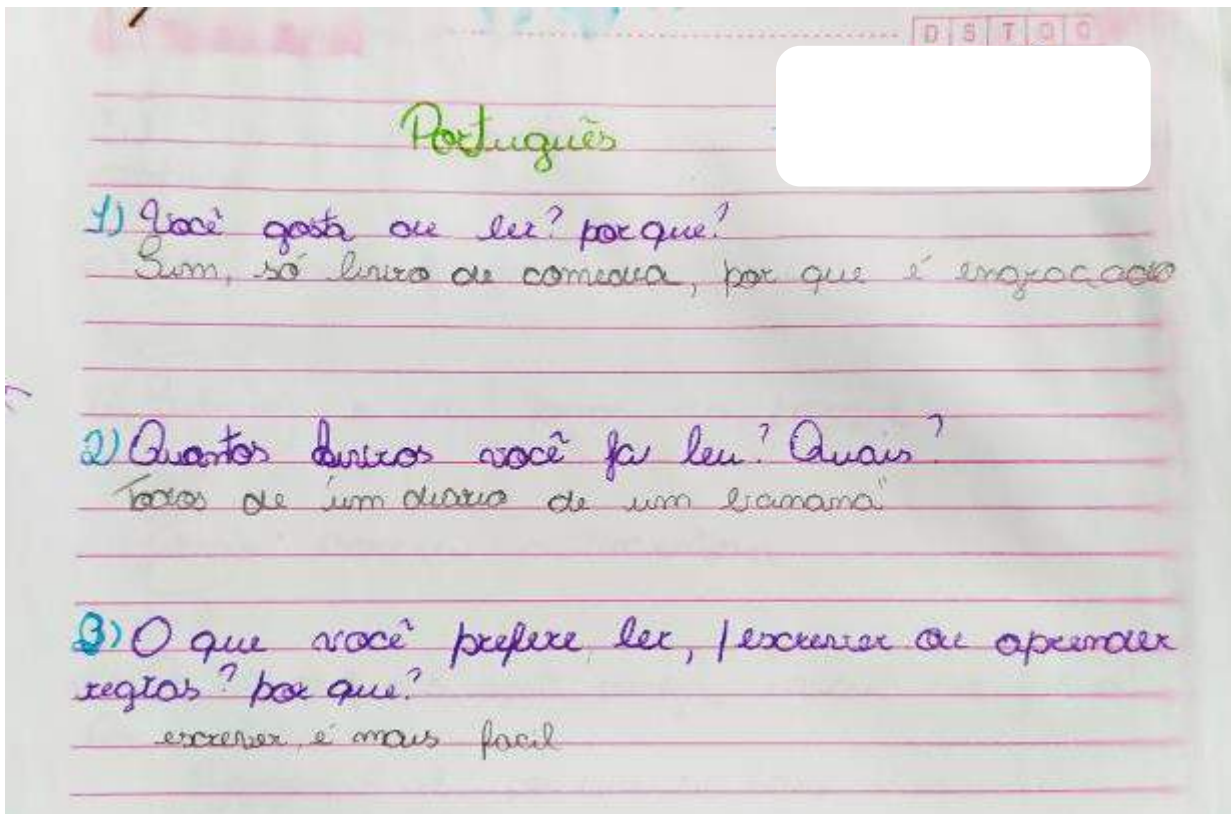 D S T Q Q
Português
1) Você gosta de ler? por que?
Sim, só livro de comedia, por que é engraçado
2) Quantos livros você ja leu? Quais?
Todos de "um diario de um banana"
3) O que você prefere ler, / escrever ou aprender
regras? por que?
escrever, é mais facil